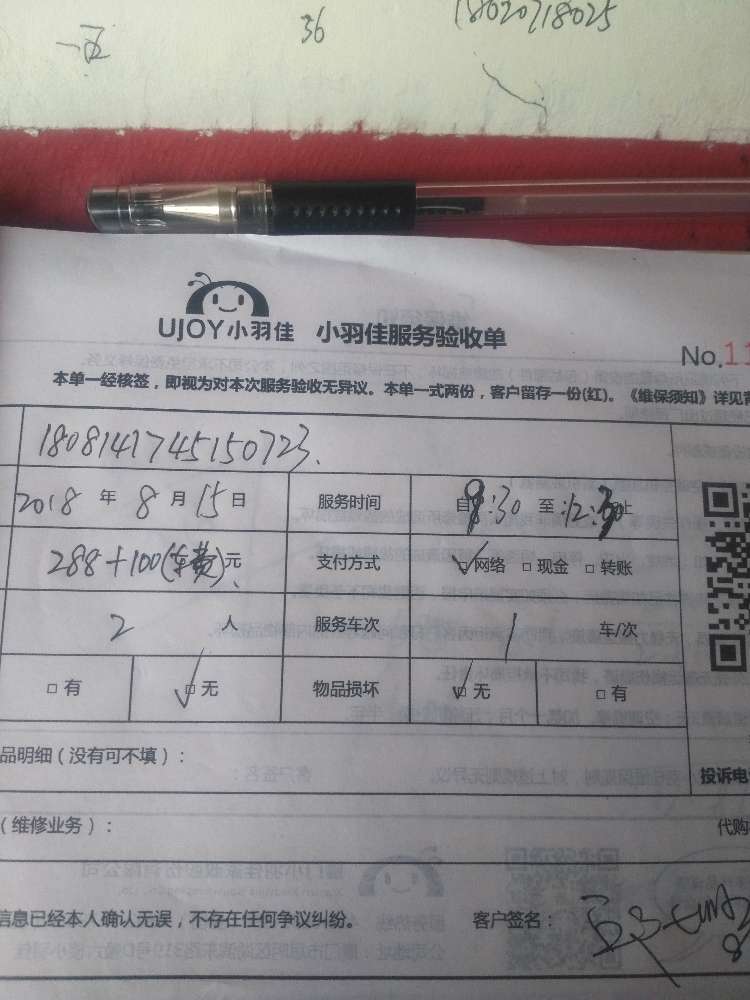 一五 36 18020718025
UJOY小羽佳 小羽佳服务验收单
No.11
本单一经核签，即视为对本次服务验收无异议。本单一式两份，客户留存一份(红)。《维保须知》详见背
1808141745150723.
2018年8月15日 服务时间 自9:30至12:30止
288+100(车费)元 支付方式 ☑网络 □现金 □转账
2人 服务车次 1车/次
□有 ☑无 物品损坏 ☑无 □有
品明细（没有可不填）：
投诉电
（维修业务）： 代购
信息已经本人确认无误，不存在任何争议纠纷。 客户签名：